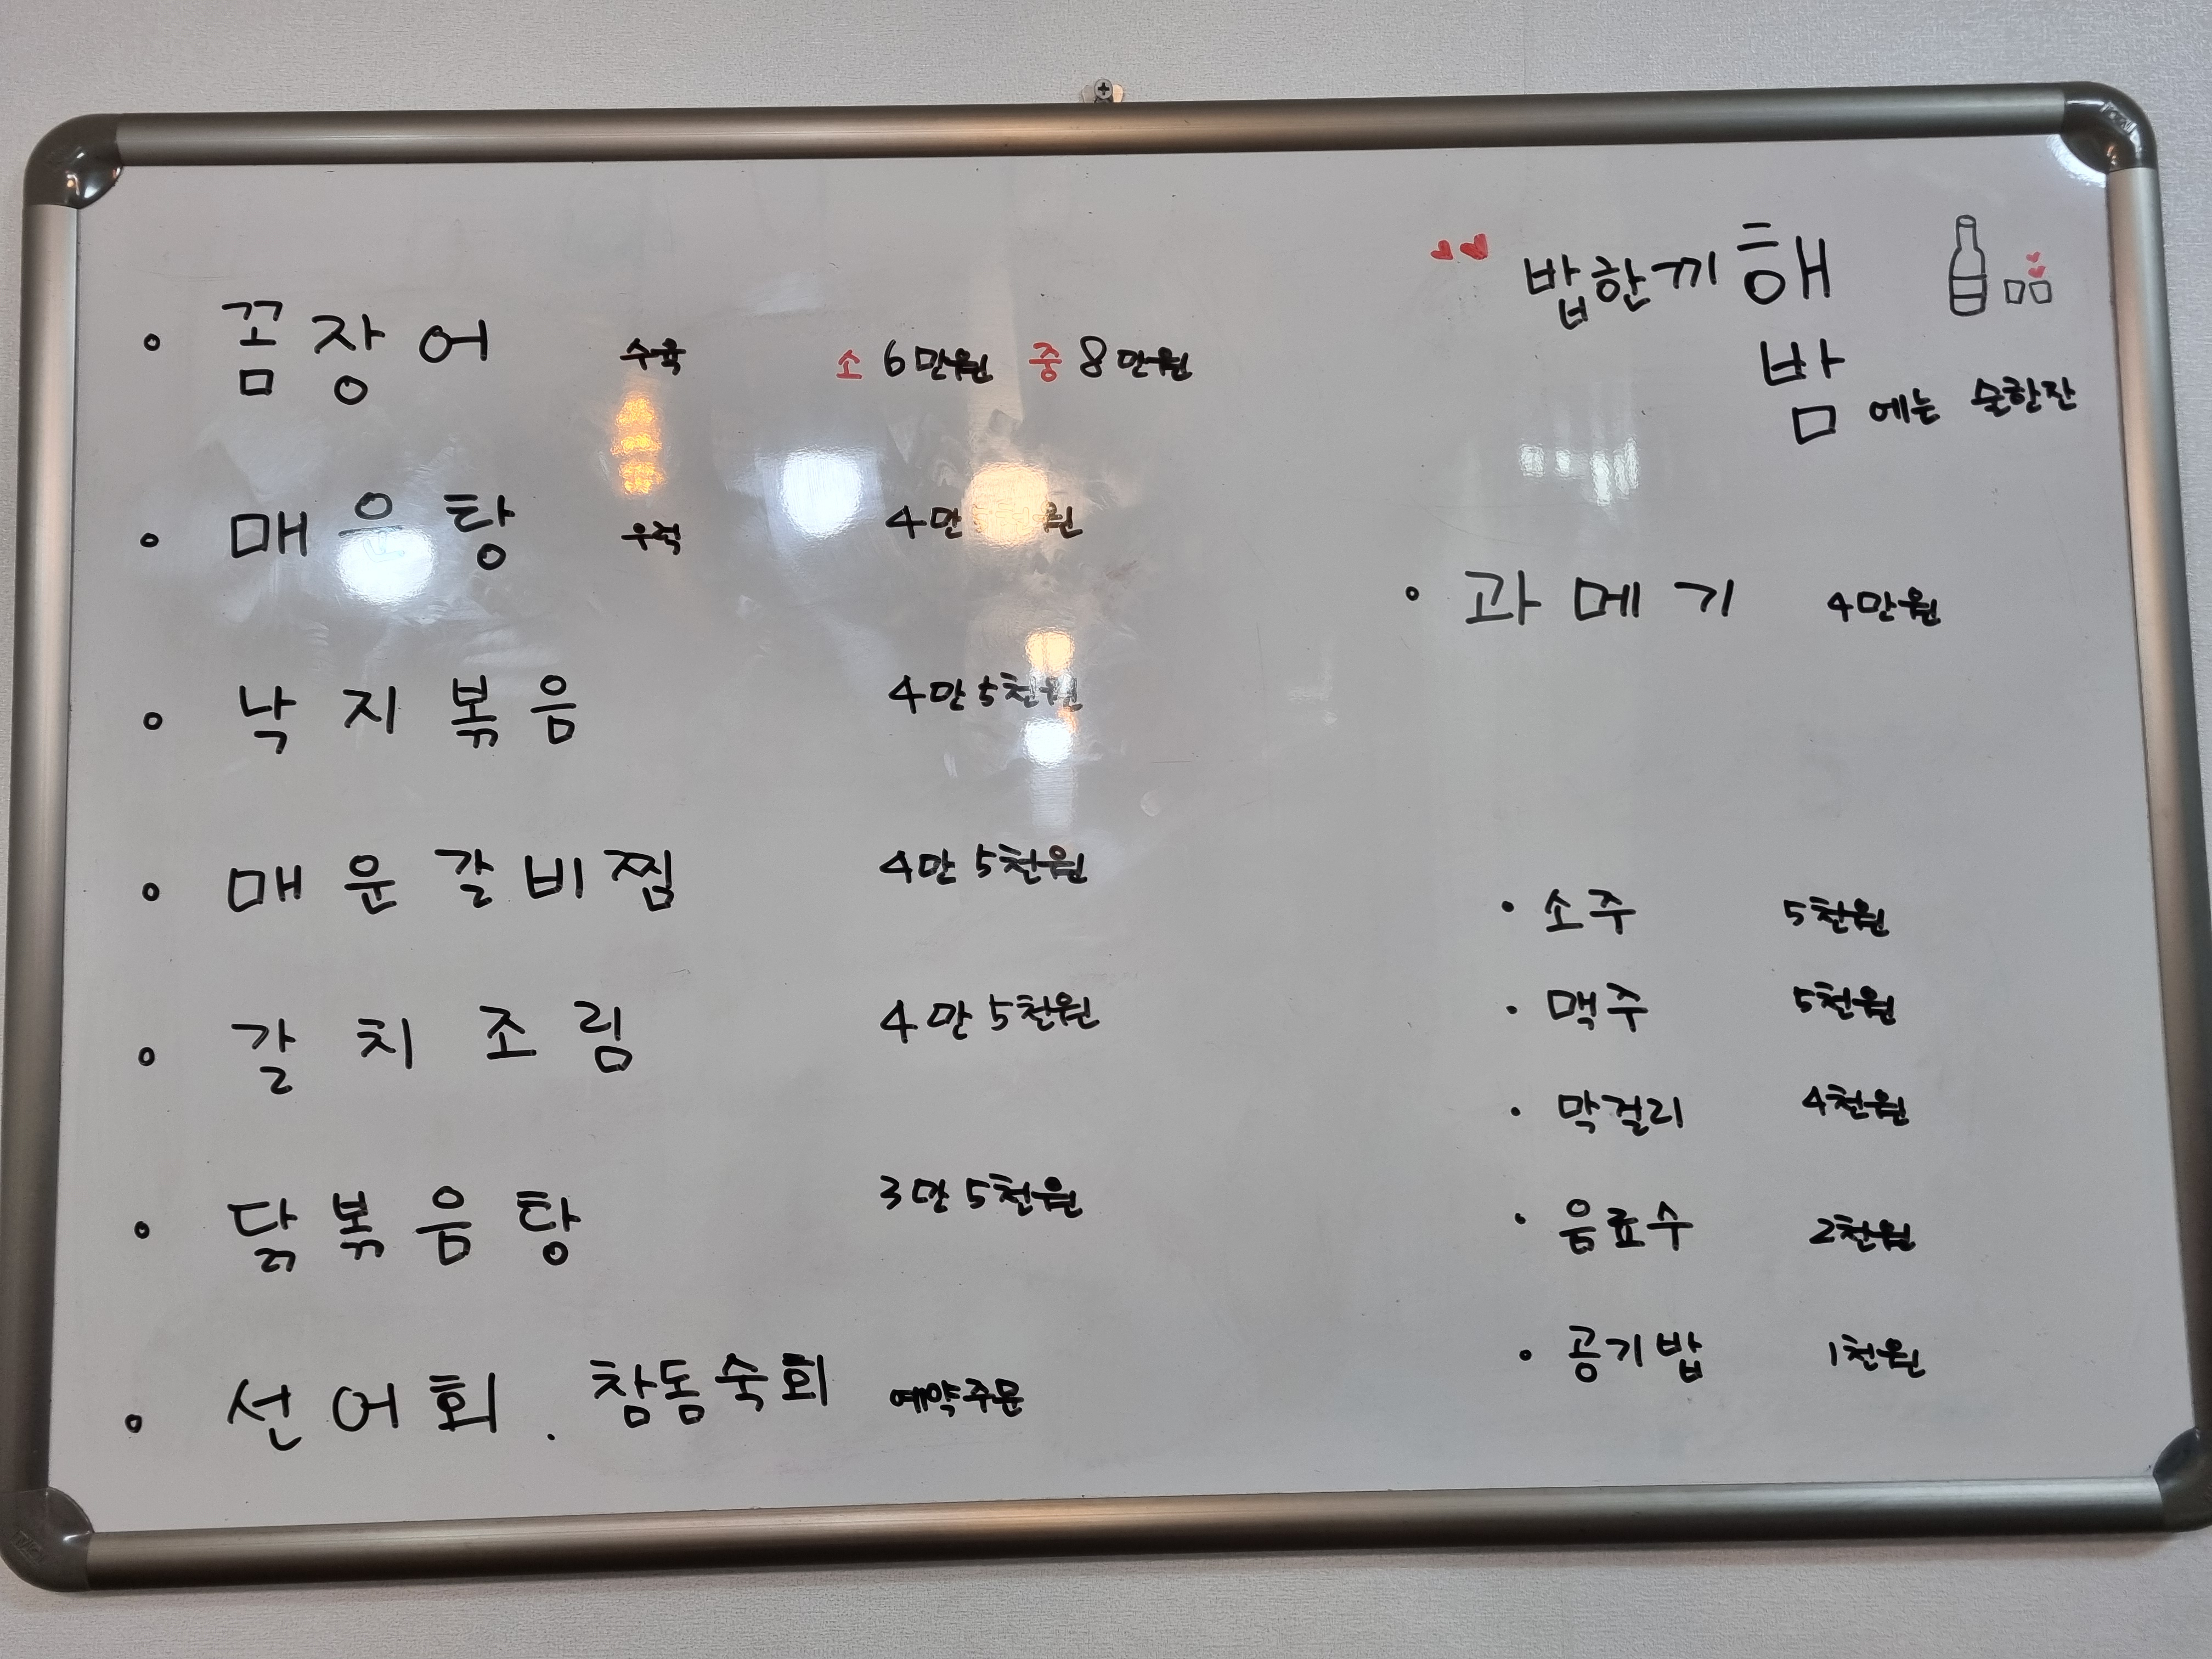 꼼장어 수육 소 6만원 중 8만원
매운탕 우럭 4만 원
낙지볶음 4만 5천원
매운갈비찜 4만 5천원
갈치조림 4만 5천원
닭볶음탕 3만 5천원
선어회. 참돔숙회 예약주문
밥한끼해
밤에는 술한잔
과메기 4만원
소주 5천원
맥주 5천원
막걸리 4천원
음료수 2천원
공기밥 1천원